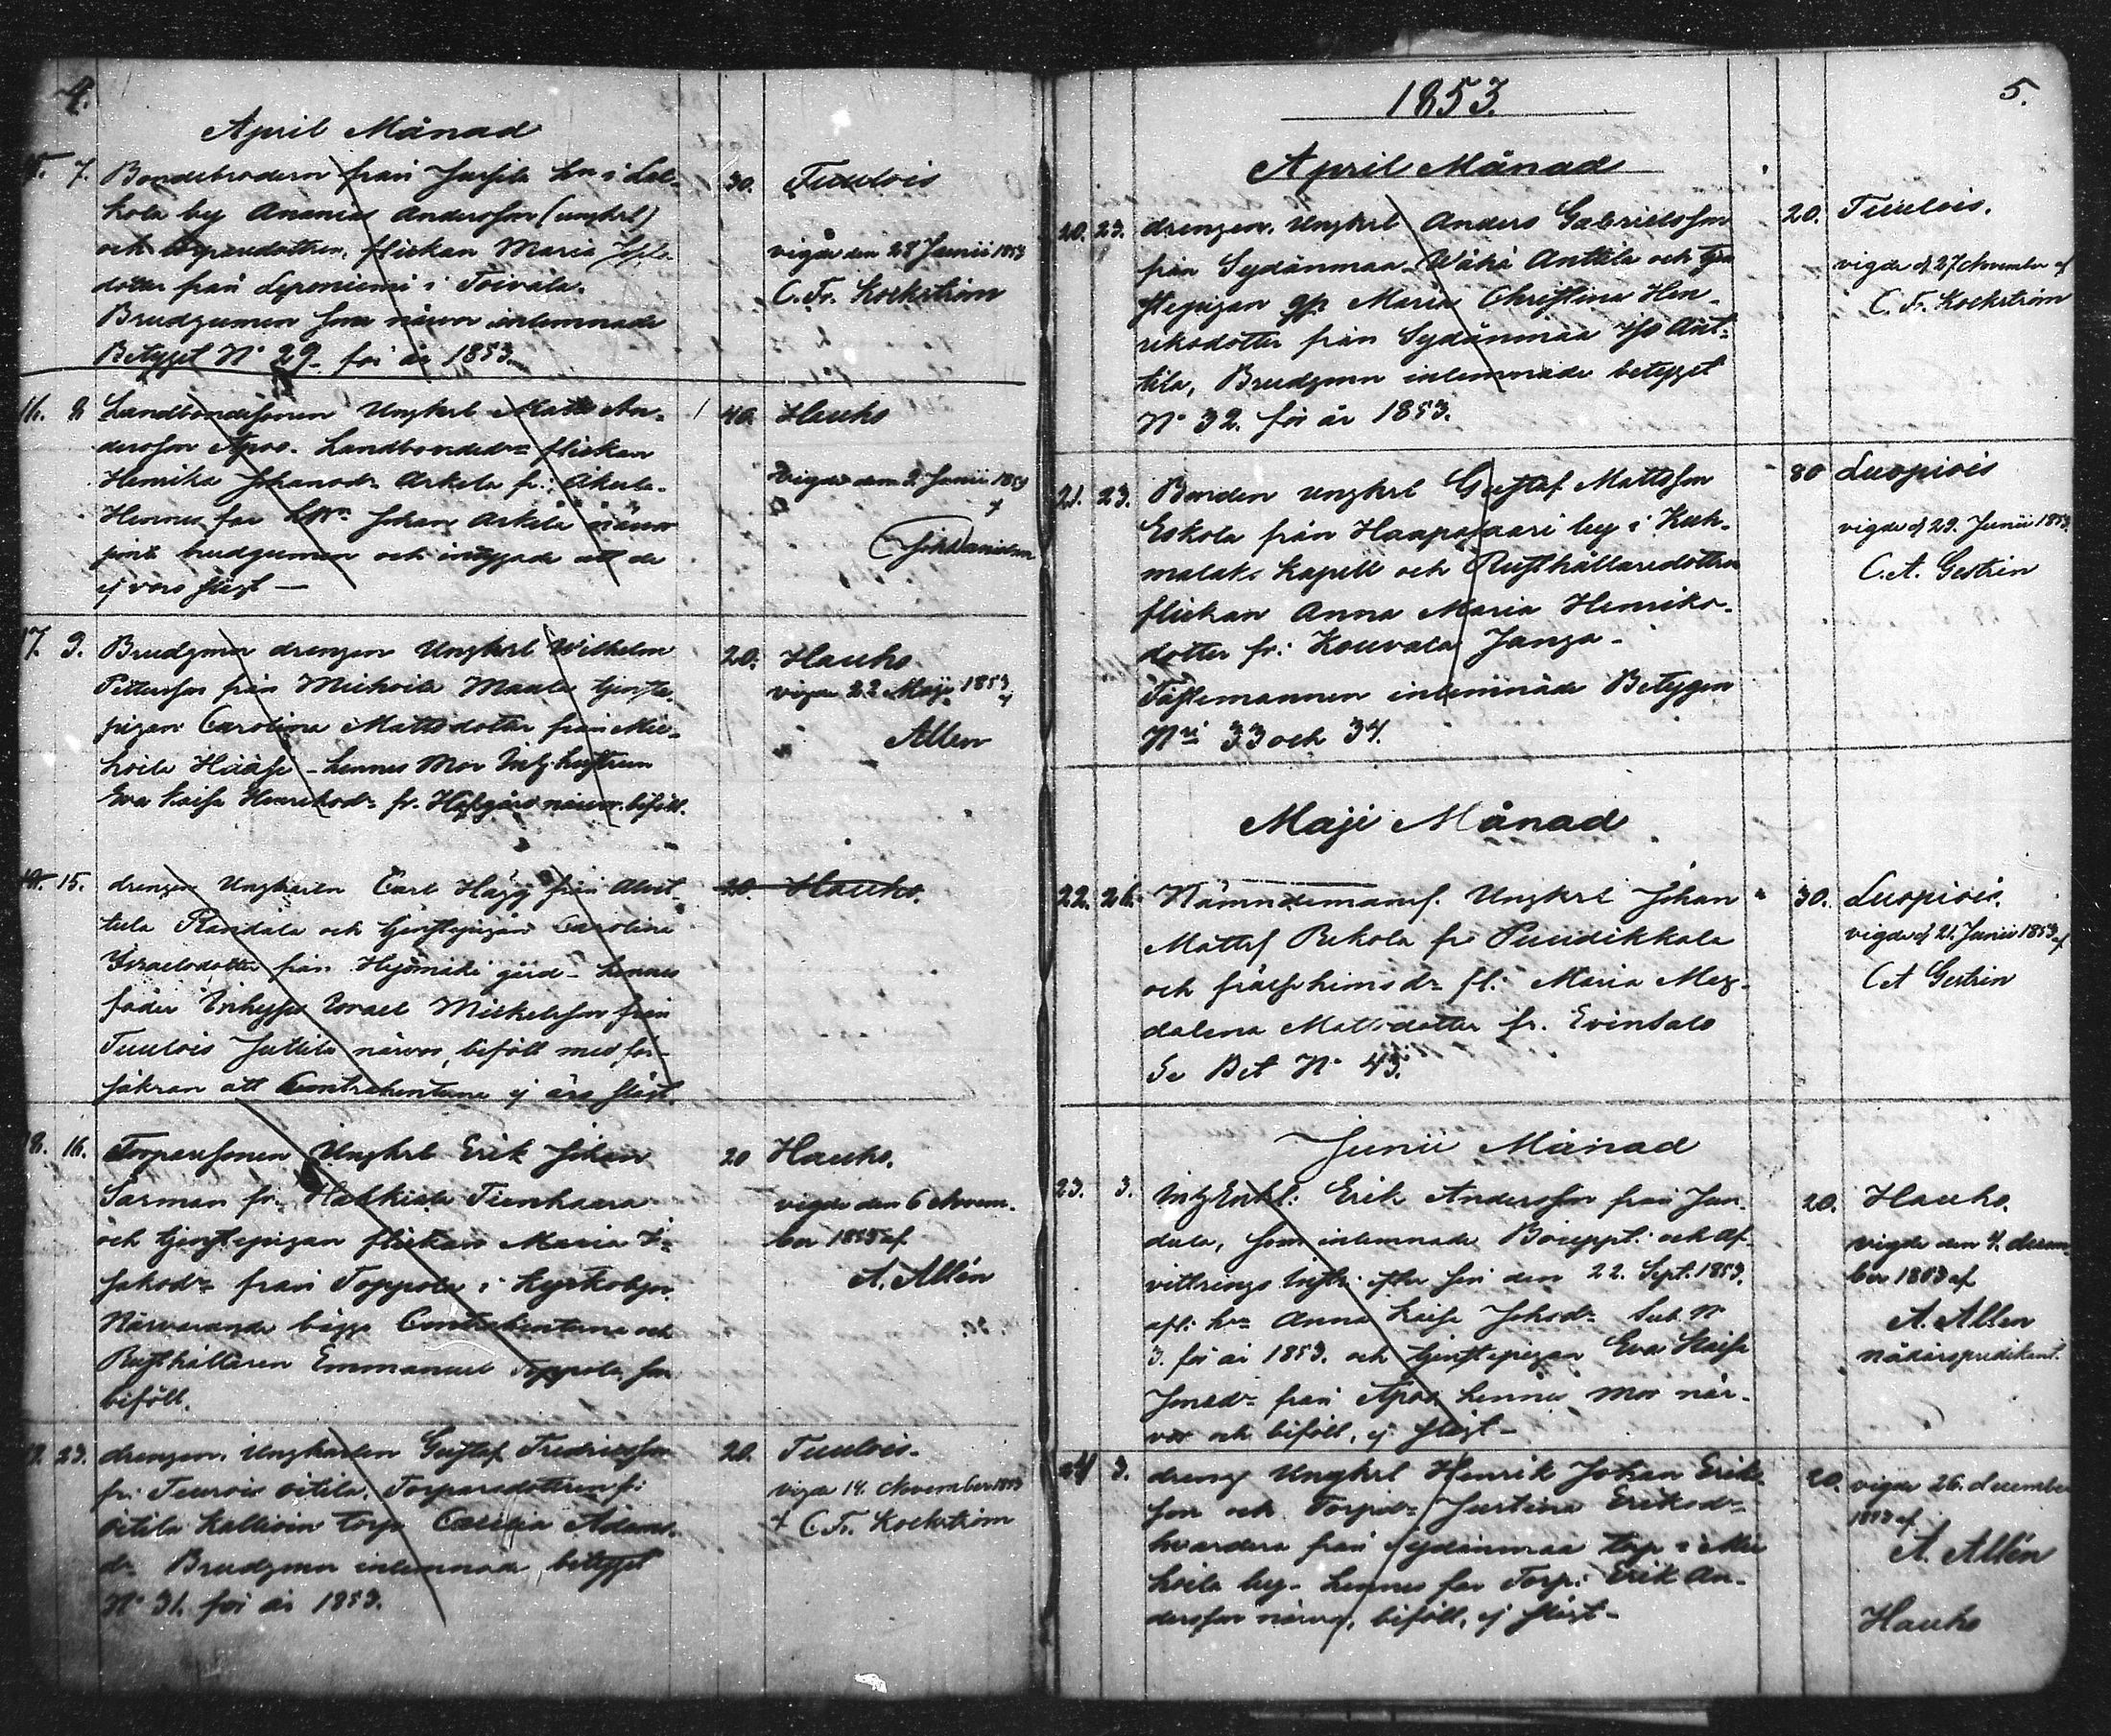 4.
April Månad
15. 7. Bondebrodern från
kola by Ananias Andersson (ungkrl)
och flickan Maria
dotter från Leponiemi i Toivala.
Brudgumen som närvar inlemnade
Betyget No 29. för år 1853.
30. Tuulois
vigde den 28 Junii 1853
C. Fr. Kockström
16. Landbondesonen Ungkrl Matts An-
dersson Landbondedr flickan
Henrika Johansdr Arkela fr.
Hennes far Johan Arkela närvar
jemte brudgumen och intygade att de
ej voro slägt —
40. Hauho
vigde den 2 Junii 1853
17. 9. Brudgmn drengen Ungkrl Wilhelm
Pettersson från Miehoila Maula tjenste
pigan Carolina Mattsdotter från Mie-
hoila Hääse – hennes Mor Inh:hustrun
Eva Caisa Henriksdr fr. närvar. biföll.
20. Hauho.
vigde 22 Maji 1853
Allen
15. drengen Ungkarln Carl Hägg från Alvet-
tula Randala och tjenstepigan Carolina
Israelsdotter från gård – hennes
fader Israel Mickelsson från
Tuulois Juttila närvar, biföll med för-
säkran att Contrahenterne ej äro slägt.
20. Hauho.
18. 16. Torparesonen Ungkrl Erik Johan
Sarman fr. Hahkiala Tienhaara
och tjenstepigan flickan Maria I-
saksdr från Toppola i Kyrkobyn.
Närvarande bägge Contrahenterne och
Rusthållaren Emmanuel Toppola, som
biföll.
20 Hauho.
vigde den 6 Novem-
ber 1853 af
A. Allén
19. 23. drengen, Ungkarlen Gustaf Fredricsson
fr. Tuulois Oitila, Torparedottren fr:
Oitila Kallioin torp Adams-
dr Brudgmn inlemnade betyget
No 31. för år 1853.
20. Tuulois.
vigde 14. November 1853
C. Fr. Kockström
1853.
5.
April Månad
20. 23. drengen, Ungkrl Anders Gabrielsson
från Sydänmaa Wähä Anttila och tjen
stepigan Maria Christina Hen-
riksdotter från Sydänmaa Iso Ant-
tila, Brudgmn inlemnade betyget
No 32. för år 1853.
20. Tuulois.
vigde d 27 November af
C. Fr. Kockström
21. 23. Bonden ungkrl Gustaf Mattsson
Eskola från Haapasaari by i Kuh-
malaks Kapell och Rusthållaredottren
flickan Anna Maria Henriks-
dotter fr: Kouvala Janga –
Fästemannen inlemnade Betygen
Nri 33 och 34.
80 Luopiois
vigde d 29. Junii 1853
C. A. Gestrin
Maji Månad
22. 26. Nämndemans. Ungkrl Johan
Matts Rekola fr. Puutikkala
och frälsehemsdr fl: Maria Mag-
dalena Mattsdotter fr. Evinsalo
Se Bet No 43.
30. Luopiois.
vigde d 21. Junii 1853 af
C A Gestrin
Junii Månad
23. 3. Erik Andersson från Jan-
dula, som inlemnade Bouppt: och af-
vittrings efter sin den 22. Sept. 1853.
afl: hu Anna Caisa Johsdr Sub. No
3. för år 1853. och tjenstepigan Eva Kaisa
från hennes mor när-
var och biföll, ej slägt –
20. Hauho.
vigde den 4. decem-
ber 1853 af
A. Allen
nådårspredikant.
24 3. dreng Ungkrl Henrik Johan Eriks-
son och Torpdr Justina Eriksdr
hvardera från Sydänmaa torp i Mie
hoila by. hennes far Torp: Erik An-
dersson närvar, biföll, ej slägt –
20. vigde 26. december
1853 af
A. Allén
Hauho